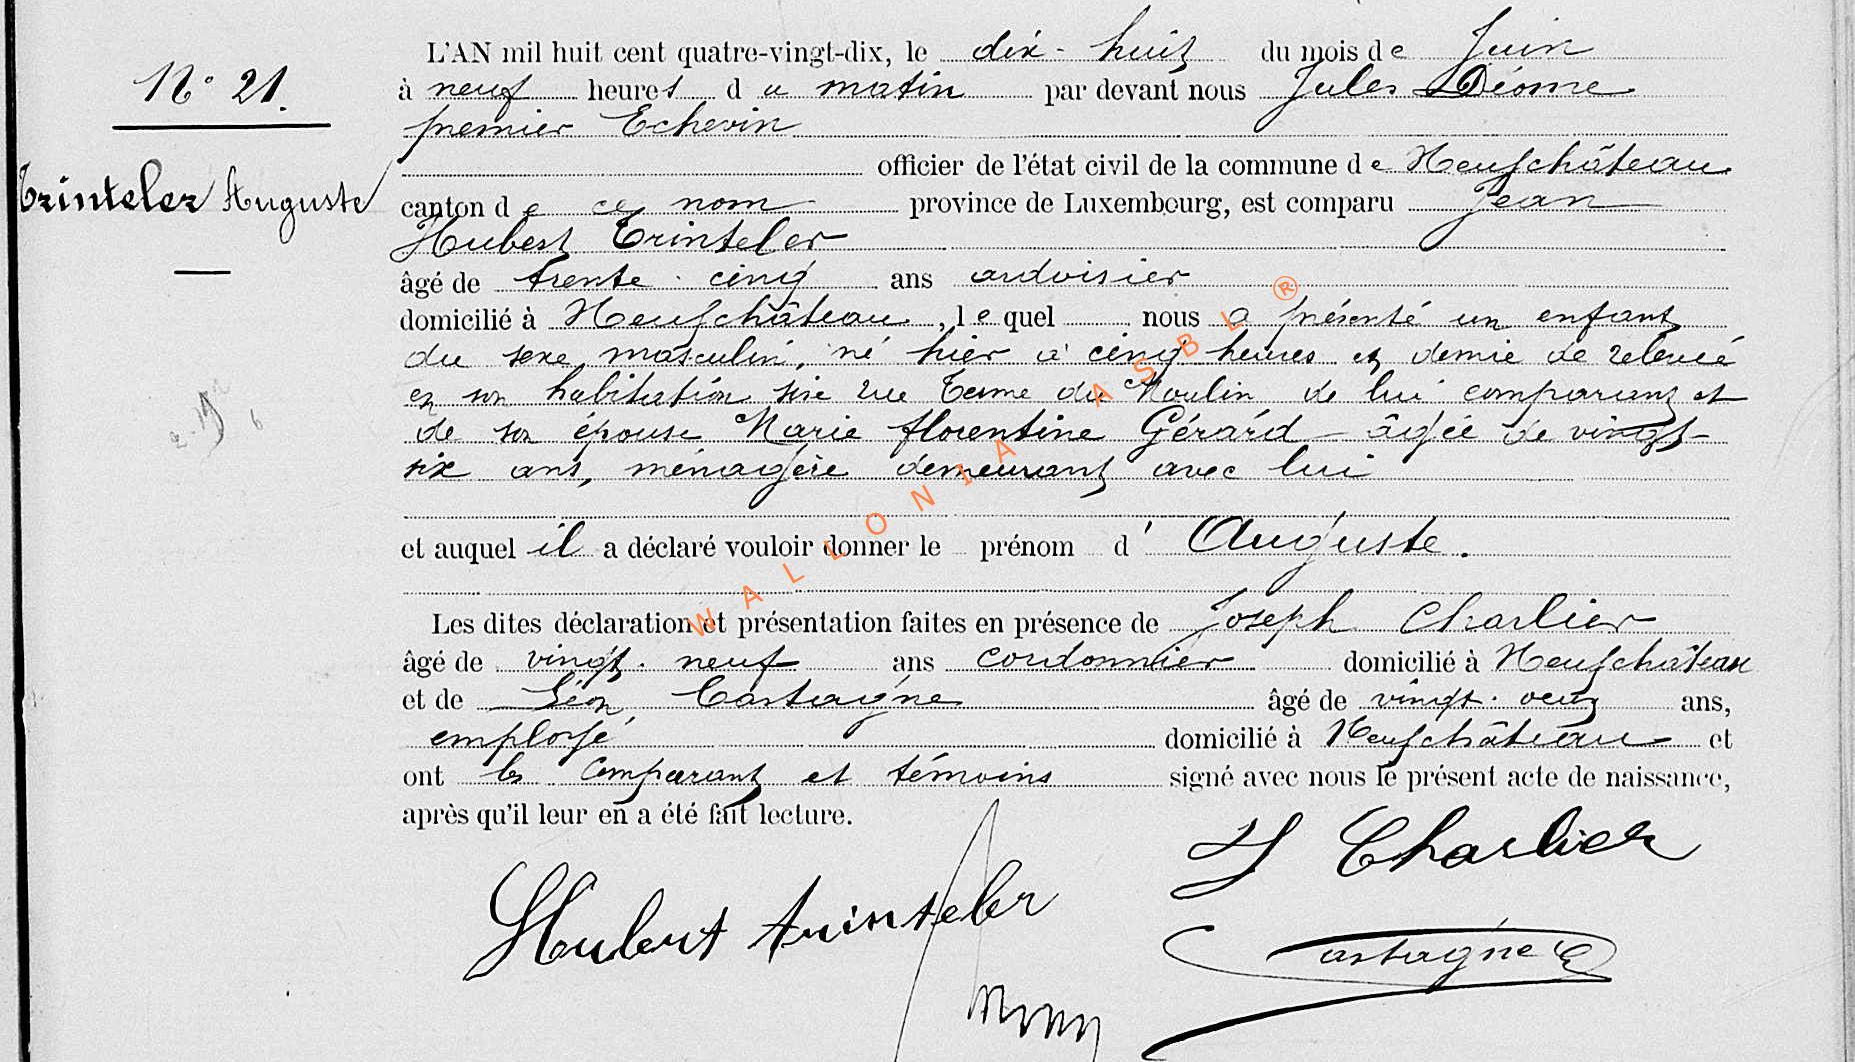 N° 21.
Trinteler Auguste
L'AN mil huit cent quatre-vingt-dix, le dix-huit du mois de Juin
à neuf heures du matin par devant nous Jules Déome
premier Echevin
officier de l'état civil de la commune de Neufchâteau
canton de ce nom province de Luxembourg, est comparu Jean
Hubert Trinteler
âgé de trente-cinq ans ardoisier
domicilié à Neufchâteau, lequel nous a présenté un enfant
du sexe masculin, né hier à cinq heures et demie de relevée
en son habitation sise rue Terme du Moulin de lui comparant et
de son épouse Marie florentine Gérard âgée de vingt-
six ans, ménagère demeurant avec lui
et auquel il a déclaré vouloir donner le prénom d'Auguste.
Les dites déclaration et présentation faites en présence de Joseph Charlier
âgé de vingt-neuf ans cordonnier domicilié à Neufchâteau
et de Léon Castagne âgé de vingt-deux ans,
employé domicilié à Neufchâteau et
ont les comparant et témoins signé avec nous le présent acte de naissance,
après qu'il leur en a été fait lecture.
J Charlier
Hubert trinteler
Castagne
WALLONIA ASBL ®